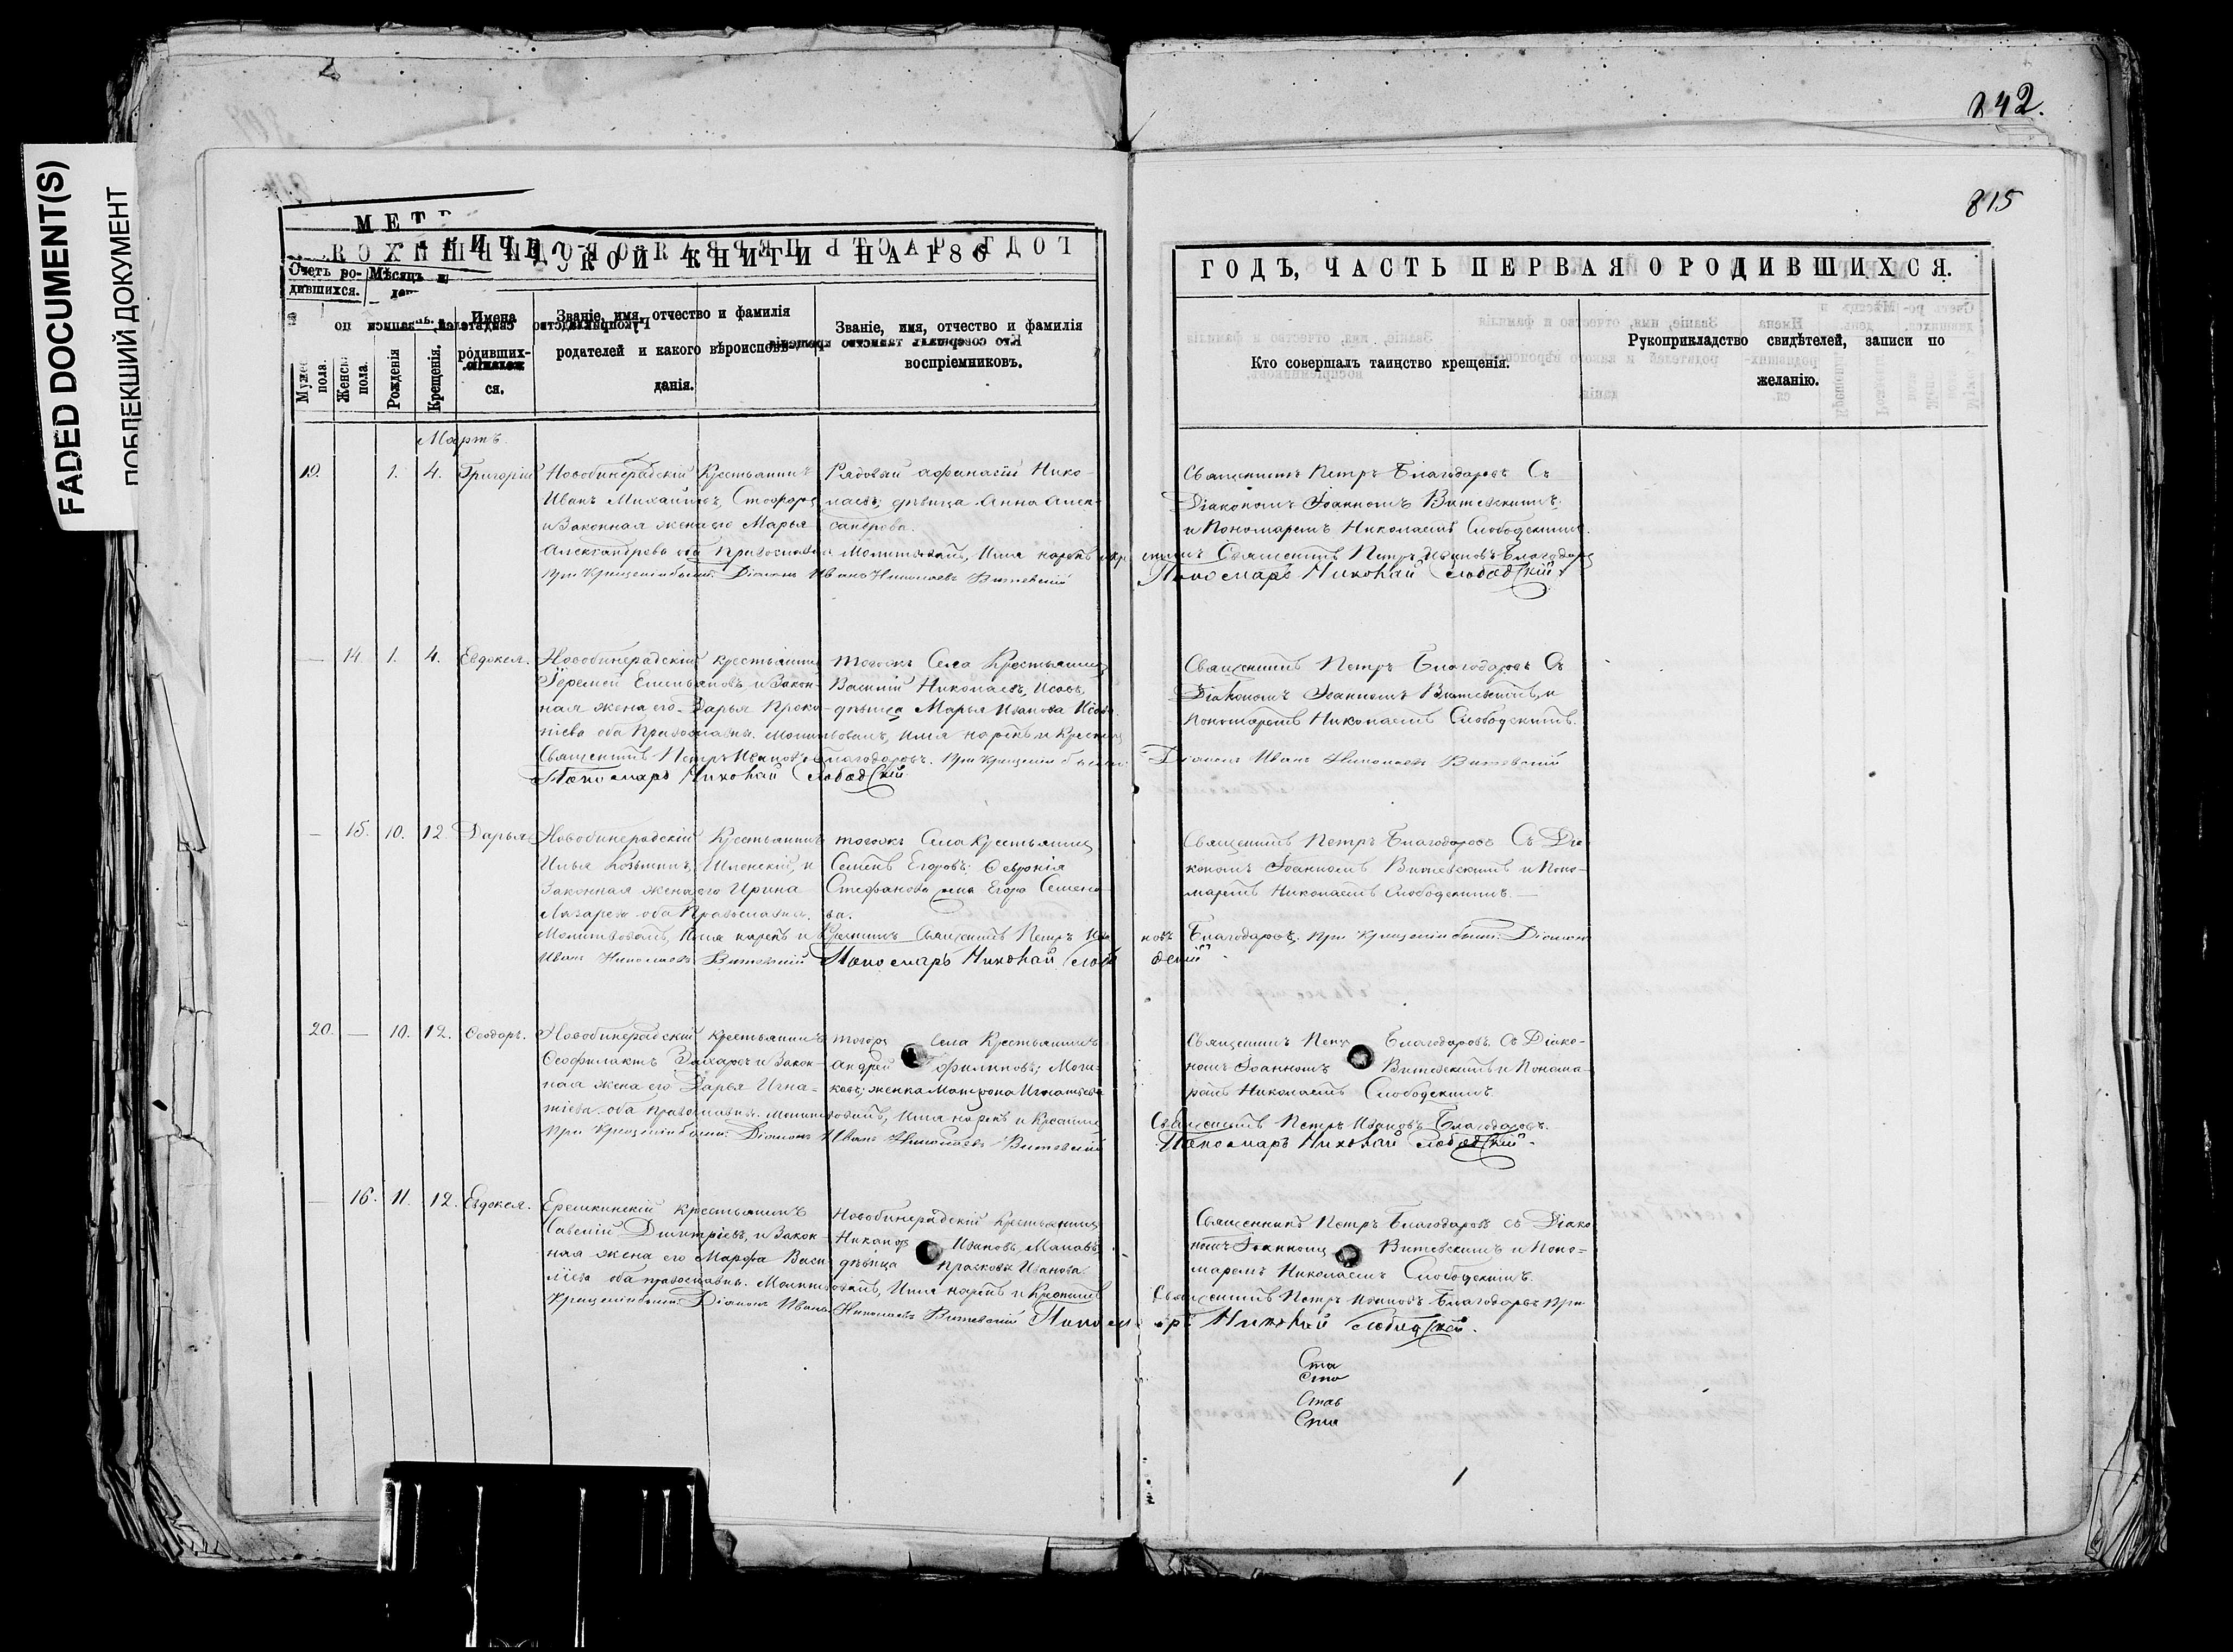 FADED DOCUMENT(S)
ПОБЛЕКШИЙ ДОКУМЕНТ
842.
815
МЕТРИЧЕСКОЙ КНИГИ НА 186
Счетъ ро- Мѣсяцъ и
дившихся. день
Имена
родивших-
ся.
Званіе, имя, отчество и фамилія
родителей и какого вѣроиспове-
данія.
Званіе, имя, отчество и фамилія
воспріемниковъ.
пола
Женск
пола.
Рожденія
Крещенія.
ГОДЪ, ЧАСТЬ ПЕРВАЯ О РОДИВШИХСЯ.
Кто совершалъ таинство крещенія.
Рукоприкладство свидѣтелей, записи по
желанію.
Мартъ
19. 1. 4. Григорій
Новобинерадскій Крестьянинъ
Иванъ Михайловъ,
и Законная жена его Марья
Александрова оба Православны
Рядовый Афанасій Нико-
лаевъ; дѣвица Анна Алек-
сандрова.
Священникъ Петръ Благодаровъ Съ
Діакономъ Іоанномъ Витевскимъ,
и Пономаремъ Николаемъ Слободскимъ.
Молитвовалъ, Имя нарекъ и крестилъ Священникъ Петръ Ивановъ Благодаровъ
При Крещеніи были: Діаконъ Иванъ Николаевъ Витевскій
Пономарь Николай Слободскій
— 14. 1. 4. Евдокея.
Новобинерадскій крестьянинъ
Іеремей Емельяновъ и Закон-
ная жена его Дарья Проко-
піева оба Православны.
тогожъ Села Крестьянинъ
Василій Николаевъ, Исаевъ,
дѣвица Марья Иванова
Священникъ Петръ Благодаровъ Съ
Діакономъ Іоанномъ Витевскимъ, и
Пономаремъ Николаемъ Слободскимъ.
Молитвовалъ, Имя нарекъ и Крестилъ
Священникъ Петръ Ивановъ Благодаровъ. При Крещеніи были: Діаконъ Иванъ Николаевъ Витевскій
Пономарь Николай Слободскій
— 15. 10. 12. Дарья
Новобинерадскій Крестьянинъ
Илья Козьминъ, и
Законная жена его Ирина
Лазарева оба Православны.
тогожъ Села Крестьянинъ
Семенъ Егоровъ; Февронія
Стефанова жена Егора Семено-
ва.
Священникъ Петръ Благодаровъ Съ Діа-
кономъ Іоанномъ Витевскимъ и Поно-
маремъ Николаемъ Слободскимъ.—
Молитвовалъ, Имя нарекъ и Крестилъ Священникъ Петръ Ивановъ Благодаровъ. При Крещеніи были: Діаконъ
Иванъ Николаевъ Витевскій Пономарь Николай Слободскій
20. — 10. 12. Ѳеодоръ.
Новобинерадскій крестьянинъ
Ѳеофилактъ Захаровъ и Закон-
ная жена его Дарья Игна-
тіева оба православны.
тогожъ Села Крестьянинъ
Андрей Филиповъ;
женка Матрона Игнатьева
Священникъ Петръ Благодаровъ. Съ Діако-
номъ Іоанномъ Витевскимъ и Понома-
ремъ Николаемъ Слободскимъ.
Молитвовалъ, Имя нарекъ и Крестилъ Священникъ Петръ Ивановъ Благодаровъ.
При Крещеніи были: Діаконъ Иванъ Николаевъ Витевскій Пономарь Николай Слободскій.
— 16. 11. 12. Евдокея.
Еремкинскій крестьянинъ
Савелій Димитріевъ, и Закон-
ная жена его Марфа Васи-
ліева оба православны.
Новобинерадскій Крестьянинъ
Никаноръ Ивановъ,
дѣвица Прасковья Иванова.
Священникъ Петръ Благодаровъ съ Діако-
номъ Іоанномъ Витевскимъ и Поно-
маремъ Николаемъ Слободскимъ.
Молитвовалъ, Имя нарекъ и Крестилъ Священникъ Петръ Ивановъ Благодаровъ При
Крещеніи были: Діаконъ Иванъ Николаевъ Витевскій Пономарь Николай Слободскій.